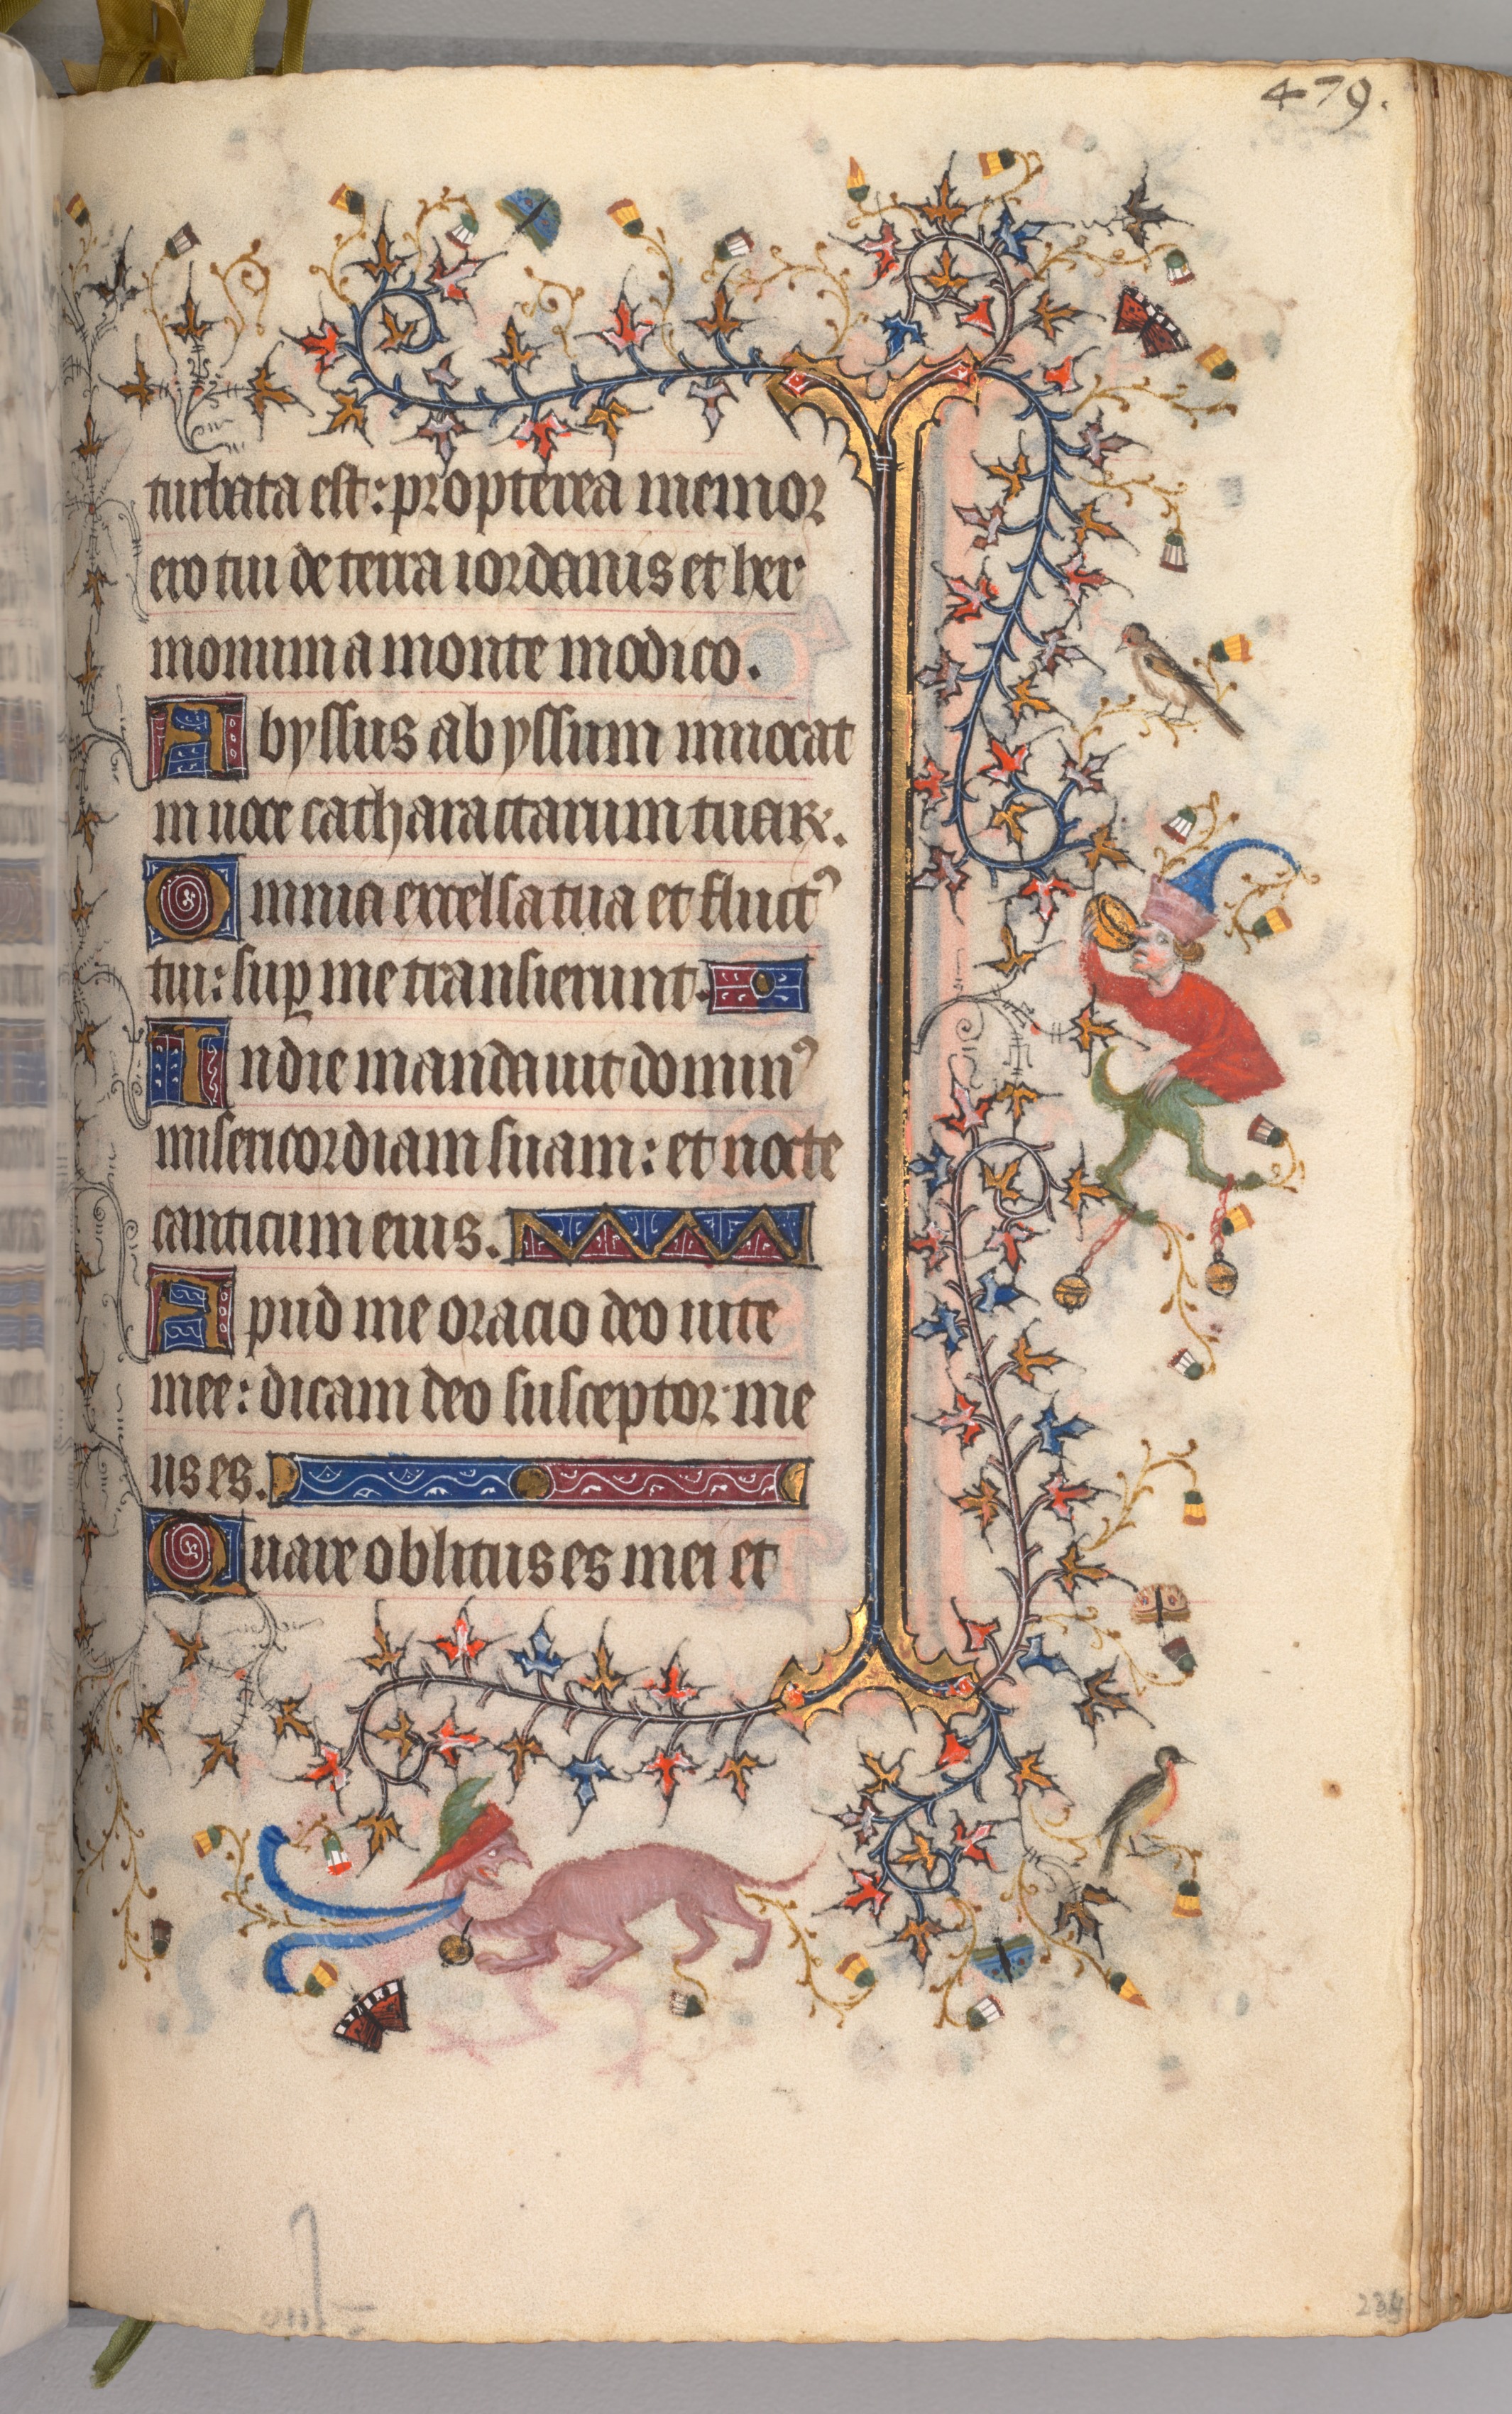 479.
turbata est: propterea memor
ero tui de terra iordanis et her
monium a monte modico.
Abyssus abyssum inuocat
in uoce catharactarum tuaꝝ.
Omnia excelsa tua et fluctꝰ
tui: suꝑ me transierunt.
In die mandauit dominꝰ
misericordiam suam: et nocte
canticum eius.
Apud me oracio deo uite
mee: dicam deo susceptor me
us es.
Quare oblitus es mei et